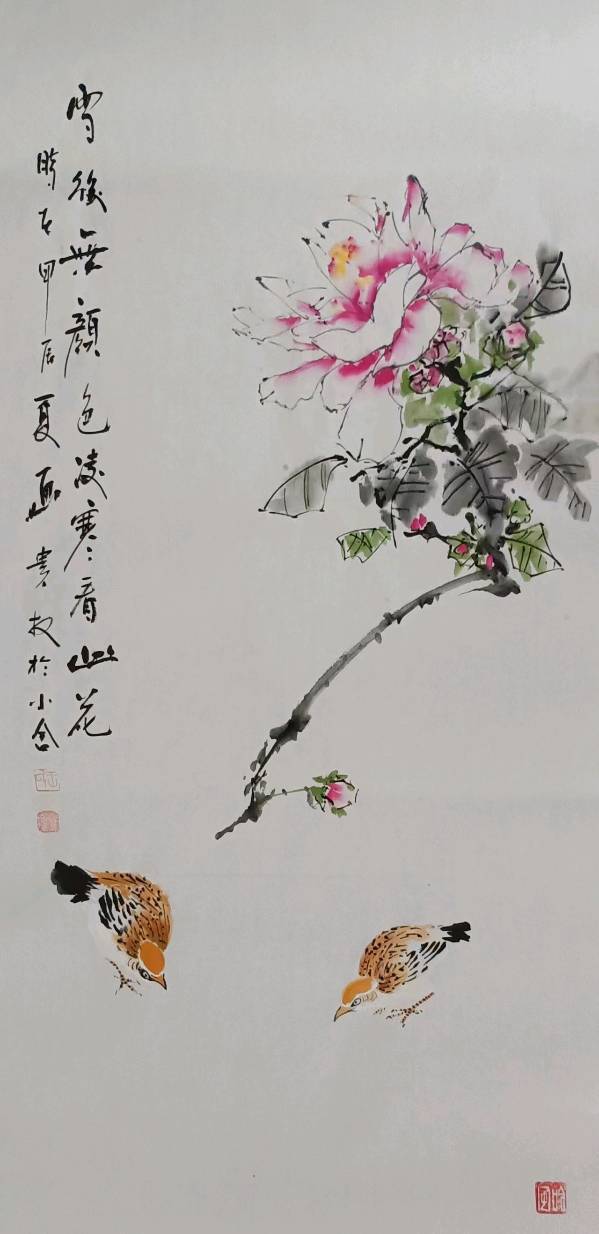 雪後無顔色凌寒看山花
時在甲辰夏画 貴 於小舍